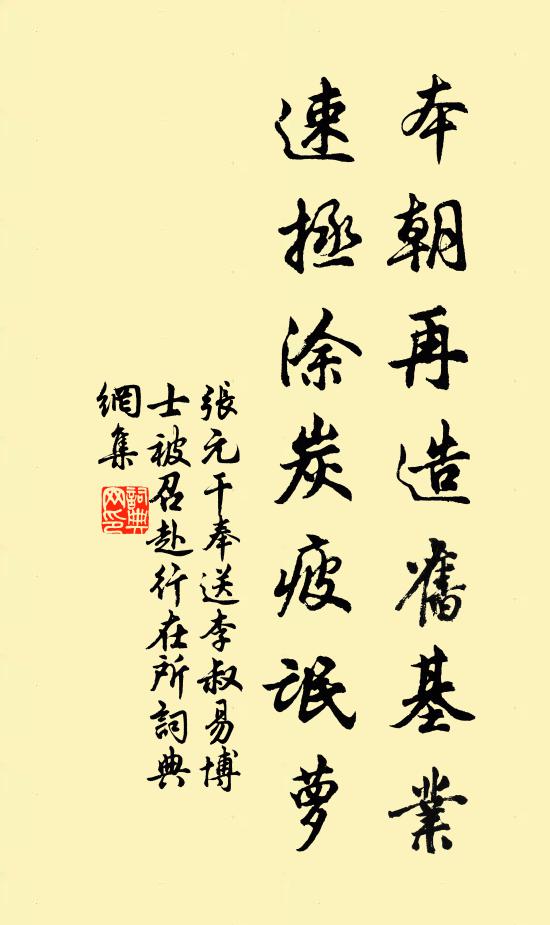 本朝再造舊基業
速拯涂炭疲氓夢
張元干奉送李叔易博
士被召赴行在所詞典
網集
詞典
网印